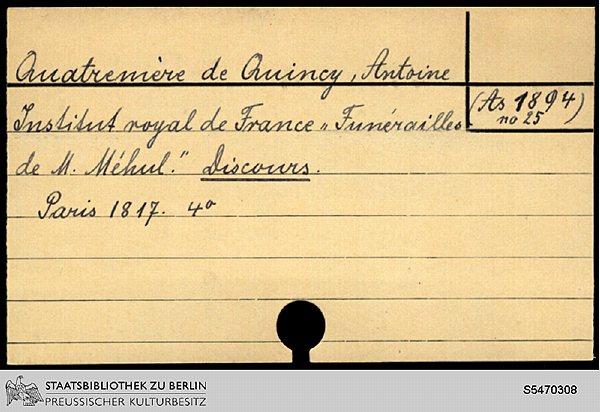 Quatremère de Quincy, Antoine
(As 1894)
no 25
Institut royal de France „Funérailles
de M. Méhul.“ Discours.
Paris 1817. 4o
STAATSBIBLIOTHEK ZU BERLIN
PREUSSISCHER KULTURBESITZ
S5470308